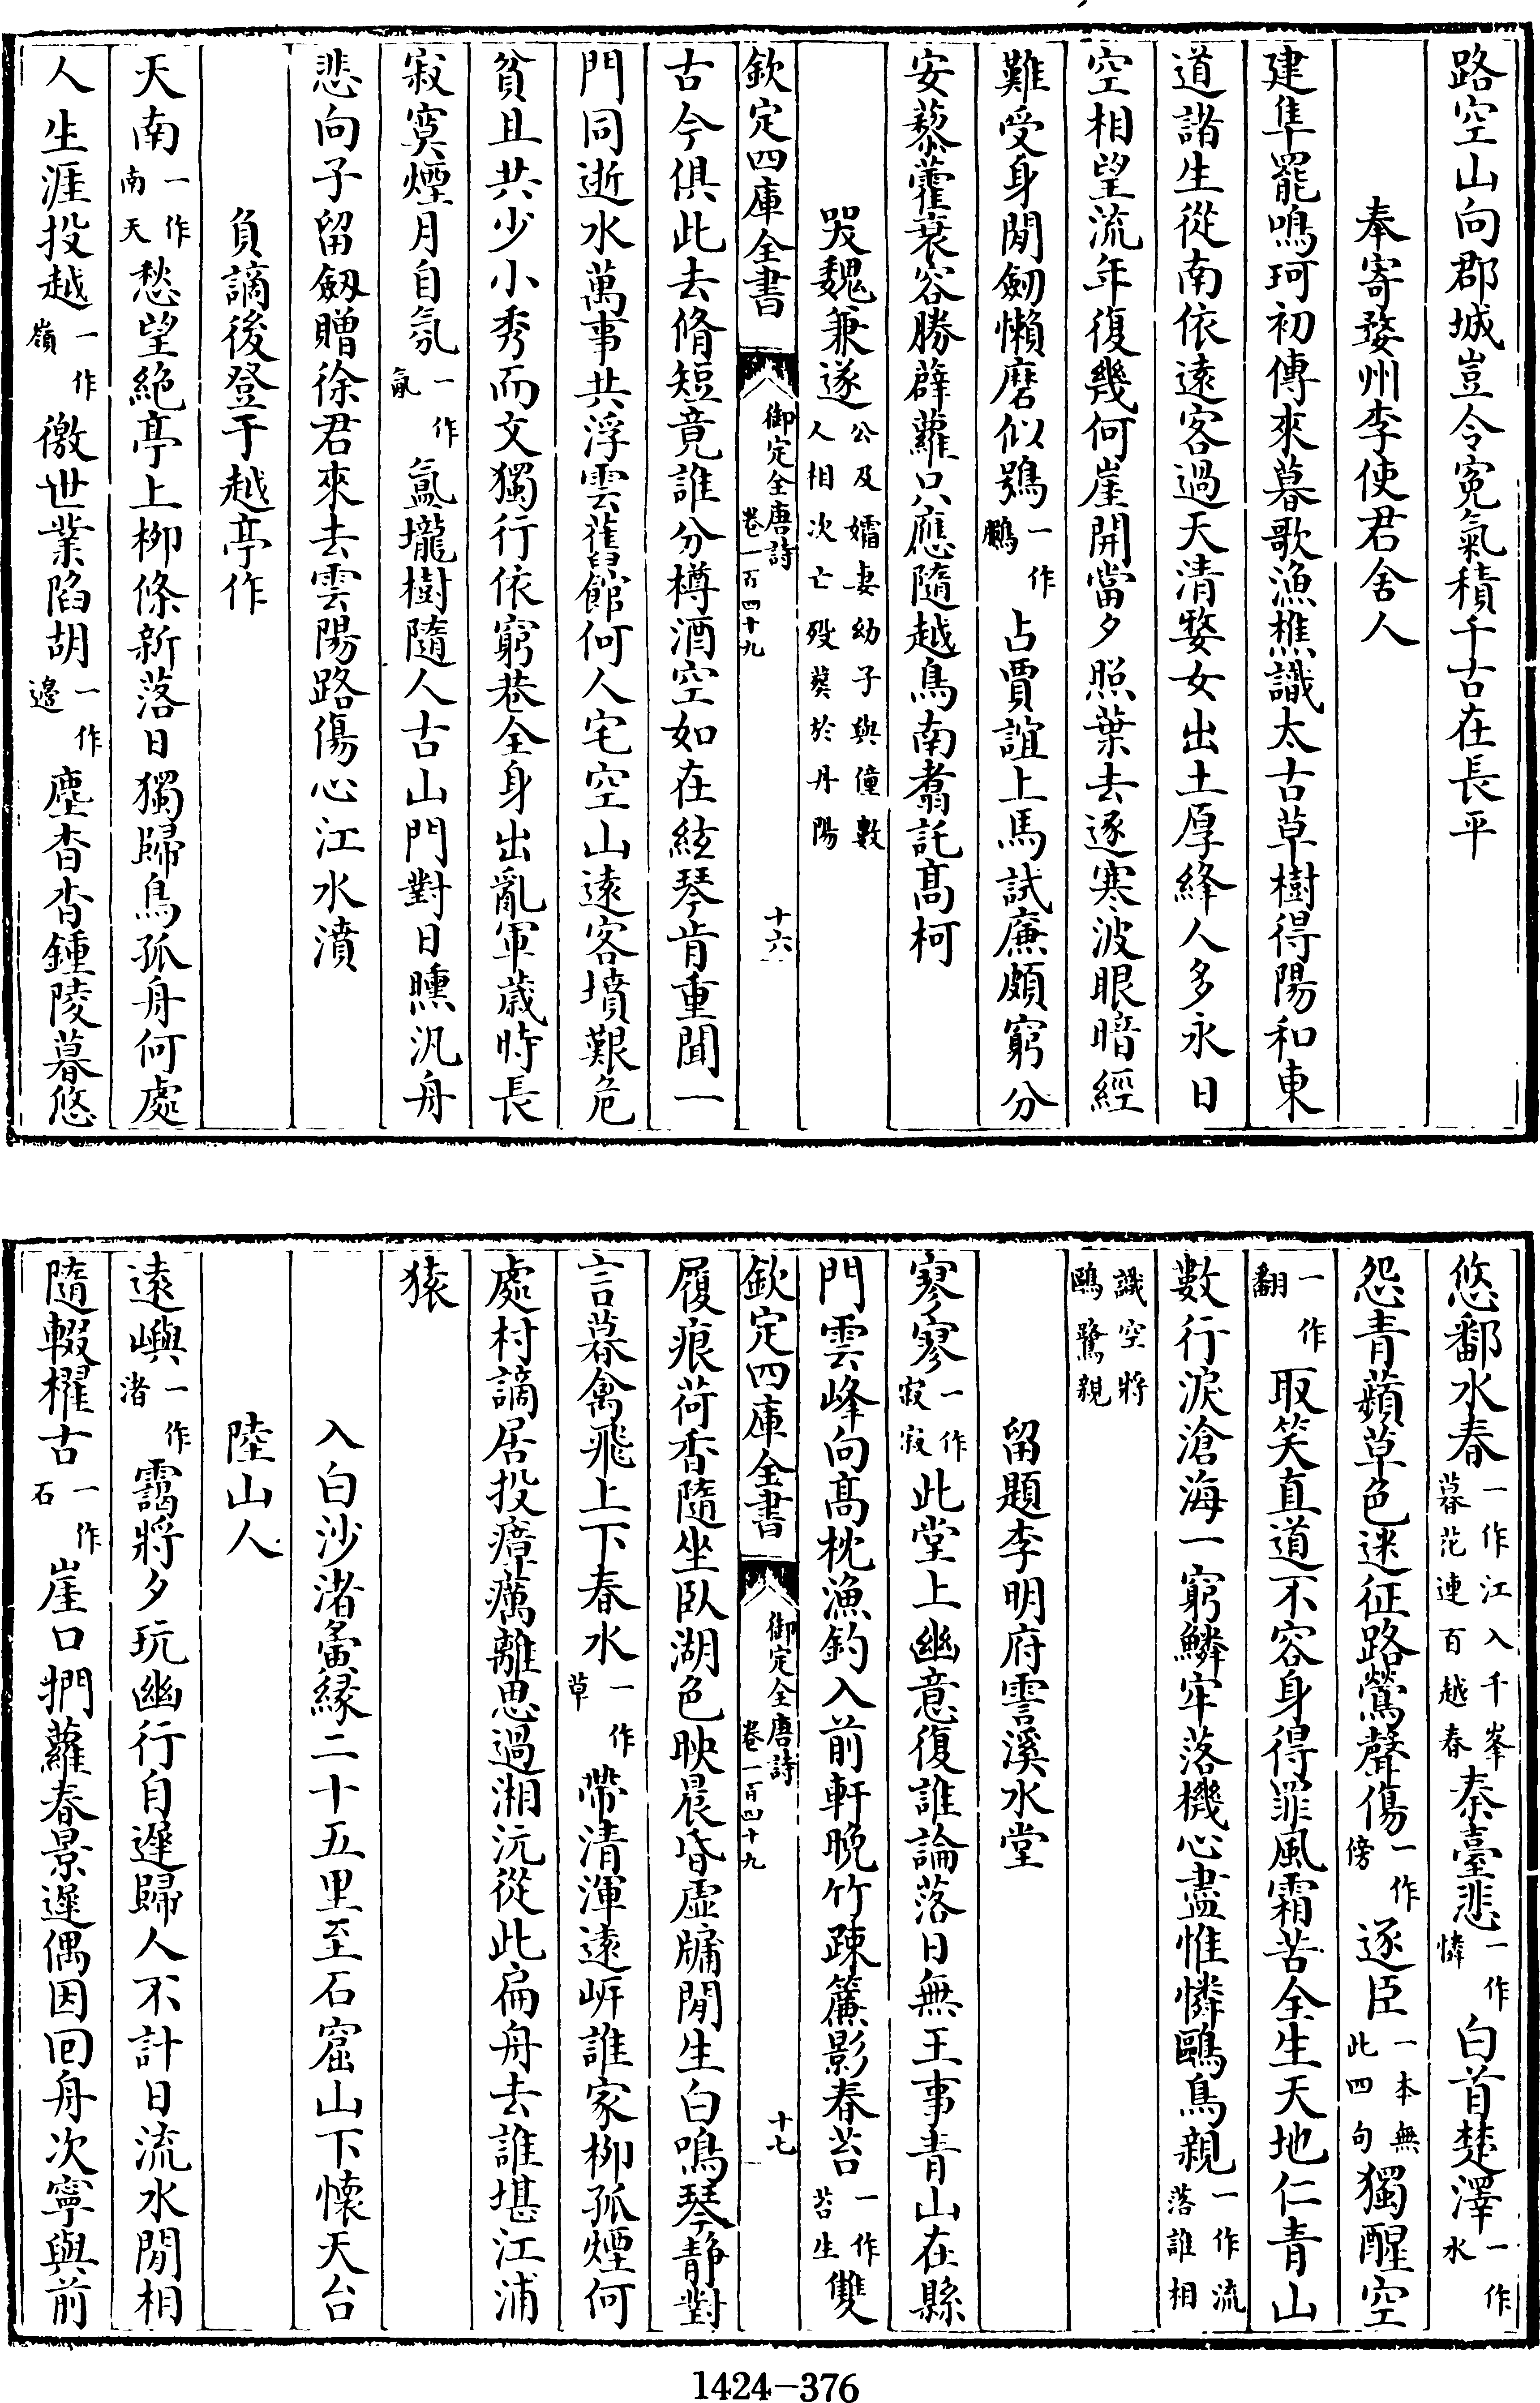 路空山向郡城豈令寃氣積千古在長平
奉寄婺州李使君舍人
建隼罷鳴珂初傳來暮歌漁樵識太古草樹得陽和東
道諸生從南依遠客過天清婺女出土厚絳人多永日
空相望流年復幾何崖開當夕照葉去逐寒波眼暗經
難受身閒劒懶磨似鴞一作鵩占賈誼上馬試廉頗窮分
安藜藿衰容勝薜蘿只應隨越鳥南翥託髙柯
哭魏兼遂公及孀妻幼子與僮數人相次亡歿葬於丹陽
欽定四庫全書 御定全唐詩卷一百四十九 十六
古今俱此去脩短竟誰分樽酒空如在絃琴肯重聞一
門同逝水萬事共浮雲舊館何人宅空山遠客墳艱危
貧且共少小秀而文獨行依窮巷全身出亂軍歲時長
寂寞煙月自氛一作氤氳壠樹隨人古山門對日曛汎舟
悲向子留劔贈徐君來去雲陽路傷心江水濆
負謫後登干越亭作
天南一作南天愁望絶亭上栁條新落日獨歸鳥孤舟何處
人生涯投越一作嶺徼世業陷胡一作邉塵杳杳鍾陵暮悠
悠鄱水春一作江入千峯暮花連百越春秦臺悲一作憐白首楚澤一作水
怨青蘋草色迷征路鶯聲傷一作傍逐臣一本無此四句獨醒空
一作翻取笑直道不容身得罪風霜苦全生天地仁青山
數行淚滄海一窮鱗牢落機心盡惟憐鷗鳥親一作流落誰相
識空將鷗鷺親
留題李明府霅溪水堂
寥寥一作寂寂此堂上幽意復誰論落日無王事青山在縣
門雲峰向髙枕漁釣入前軒晚竹疎簾影春苔一作苔生雙
欽定四庫全書 御定全唐詩卷一百四十九 十七
履痕荷香隨坐臥湖色映晨昏虚牖閒生白鳴琴静對
言暮禽飛上下春水一作草帶清渾遠㟁誰家栁孤煙何
處村謫居投瘴癘離思過湘沅從此扁舟去誰堪江浦
猿
入白沙渚夤縁二十五里至石窟山下懷天台
陸山人
遠嶼一作渚靄將夕玩幽行自遲歸人不計日流水閒相
隨輟櫂古一作石崖口捫蘿春景遲偶因回舟次寧與前
1424-376